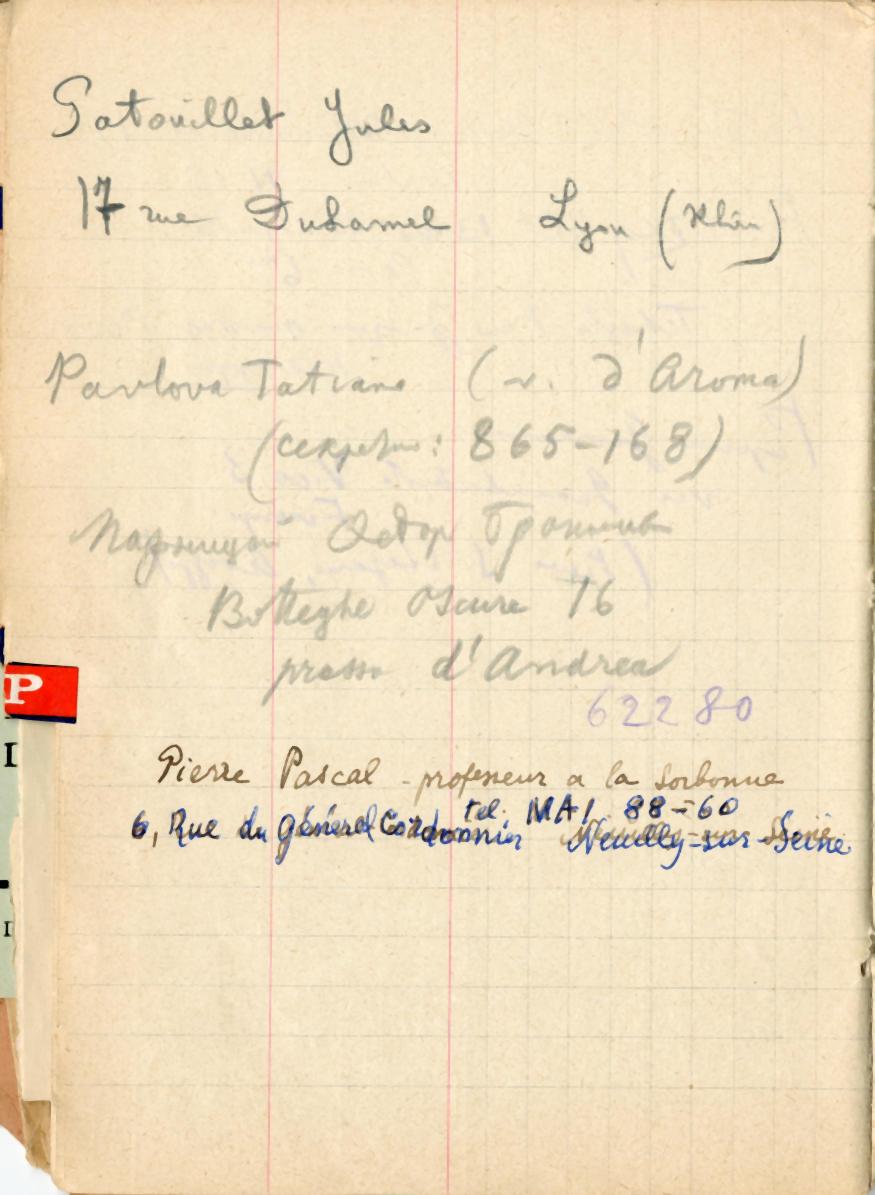 Patouillet Jules
17 rue Duhamel Lyon (Rhône)
Pavlova Tatiana (v. d'Aroma)
(секретно: 865-168)
Федор
Botteghe Oscure 16
presso d'Andrea
62280
P
Pierre Pascal - professeur a la Sorbonne
tel. MAI 88-60
6, Rue du Général Cordonnier Neuilly-sur-Seine